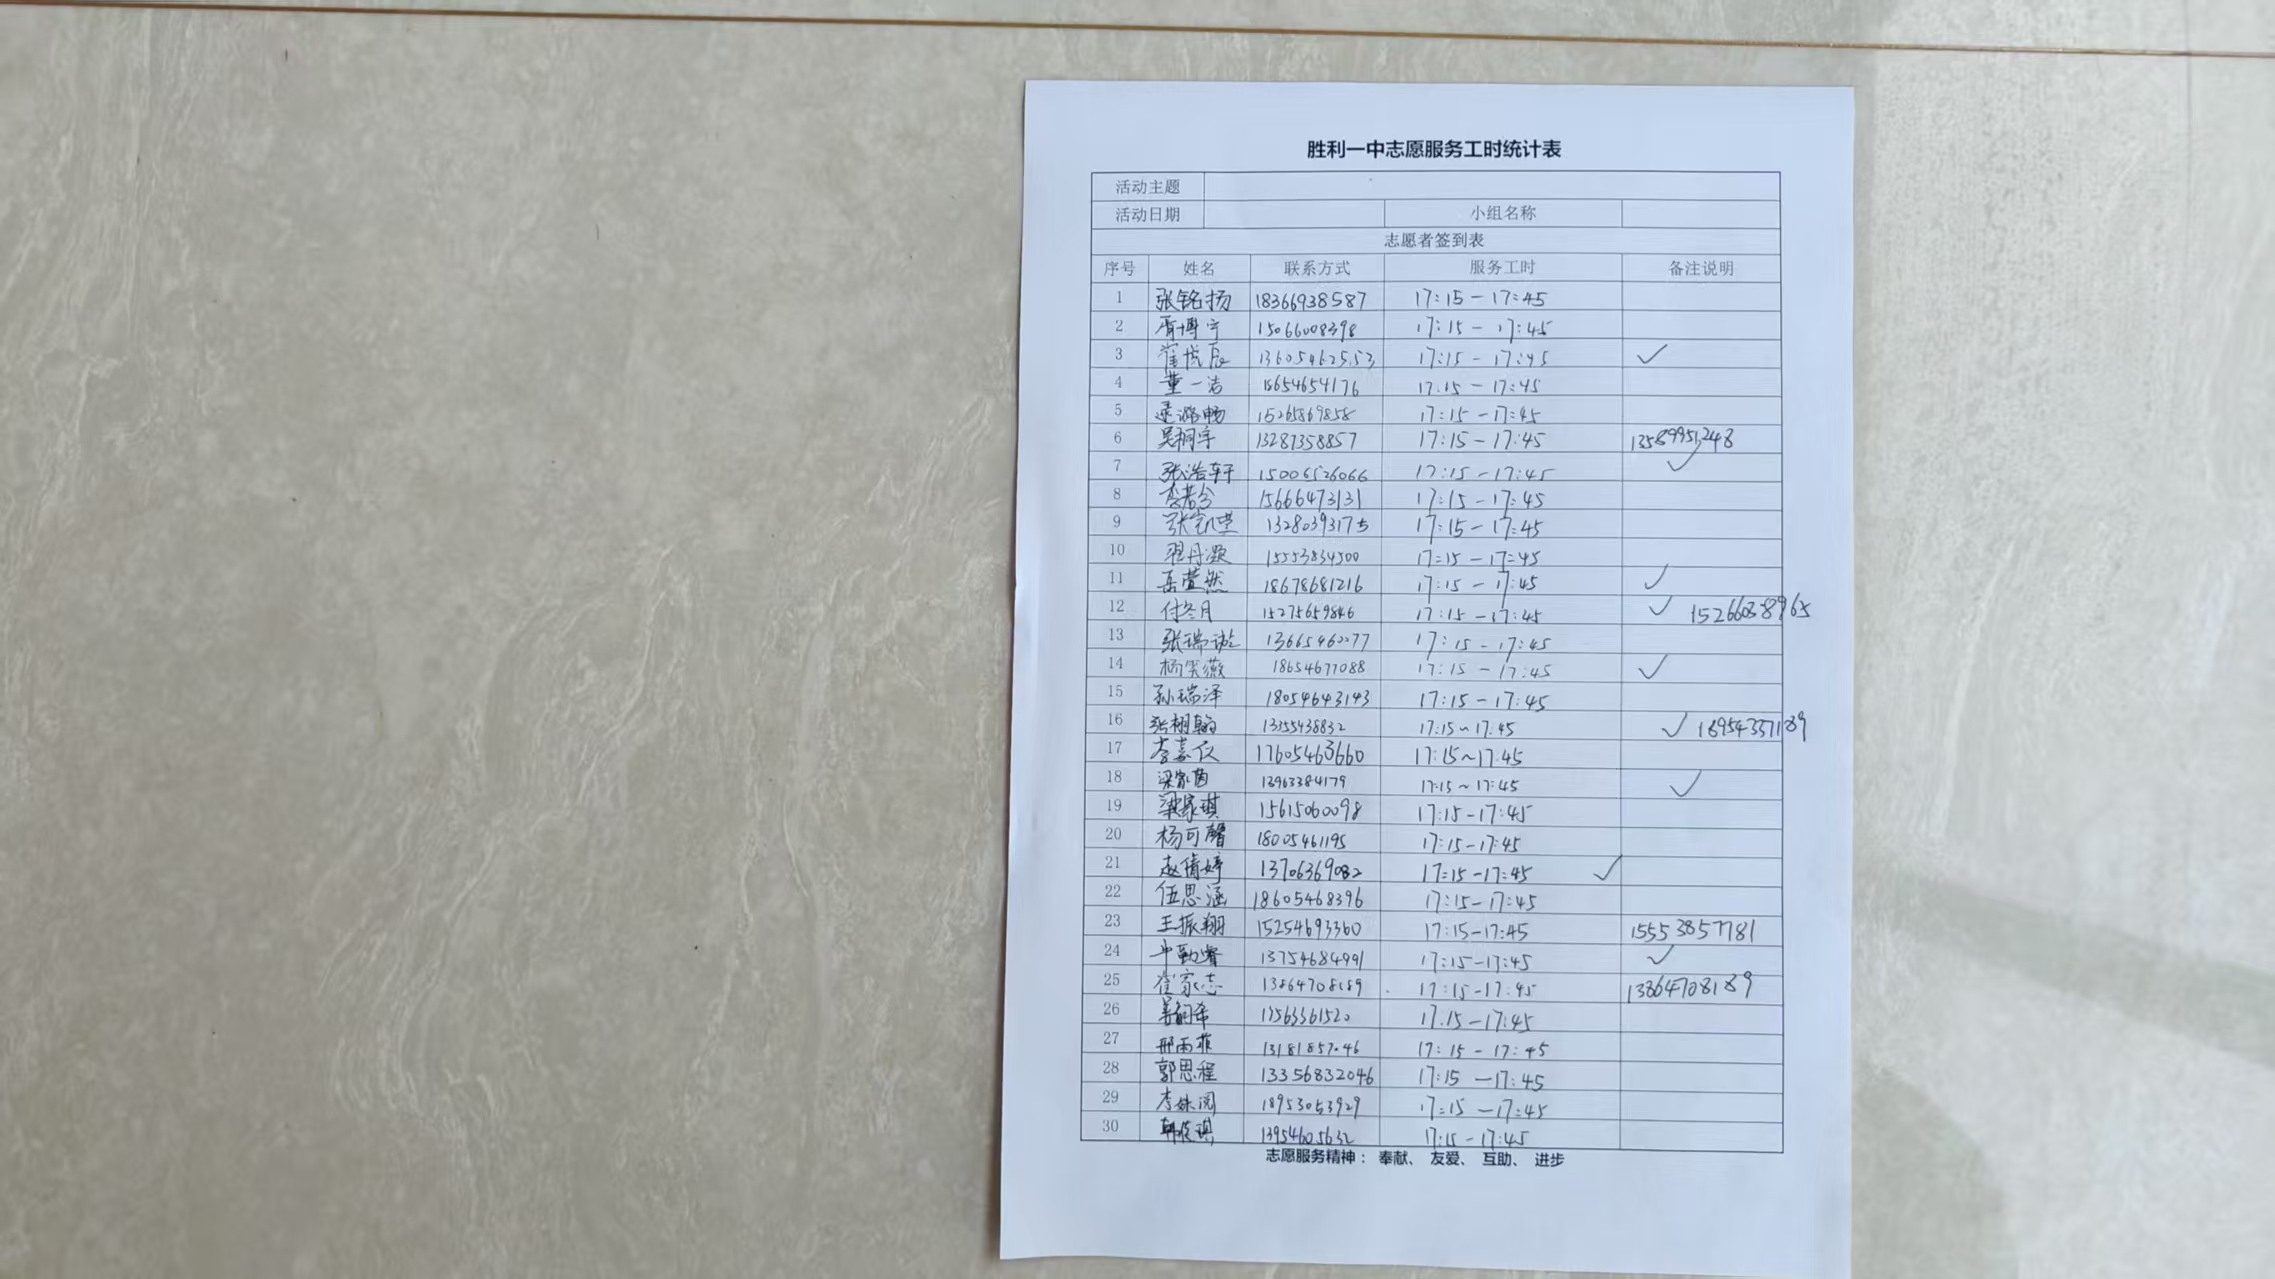 胜利一中志愿服务工时统计表
活动主题
活动日期 小组名称
志愿者签到表
序号 姓名 联系方式 服务工时 备注说明
1 张铭扬 18366938587 17:15-17:45
2 胥博宇 15066008398 17:15-17:45
3 崔悦辰 13605462553 17:15-17:45 ✓
4 董一洁 18654654176 17:15-17:45
5 15265869858 17:15-17:45
6 吴桐宇 13287358857 17:15-17:45 13589951248
7 张浩轩 15006526066 17:15-17:45 ✓
8 李若含 15666473131 17:15-17:45
9 13280393175 17:15-17:45
10 翟丹凝 15553834500 17:15-17:45
11 岳萱然 18678681216 17:15-17:45 ✓
12 付冬月 15275659846 17:15-17:45 ✓
13 13665460277 17:15-17:45
14 杨笑薇 18654677088 17:15-17:45 ✓
15 孙瑞泽 18054643143 17:15-17:45
16 张栩翰 13355438832 17:15~17:45 ✓
17 李嘉仪 17605463660 17:15~17:45
18 梁家茵 13963384179 17:15~17:45 ✓
19 梁家琪 15615060098 17:15-17:45
20 杨可馨 18005461195 17:15-17:45
21 赵倩婷 13706369082 17:15-17:45 ✓
22 伍思涵 18605468396 17:15-17:45
23 王振翔 15254693360 17:15-17:45 15553857781
24 13754684991 17:15-17:45 ✓
25 崔家志 13864708189 17:15-17:45 13864708189
26 17:15-17:45
27 邢雨菲 13181857046 17:15-17:45
28 郭思程 13356832046 17:15-17:45
29 李姝阅 18953053929 17:15-17:45
30 13954605632 17:15-17:45
志愿服务精神： 奉献、 友爱、 互助、 进步